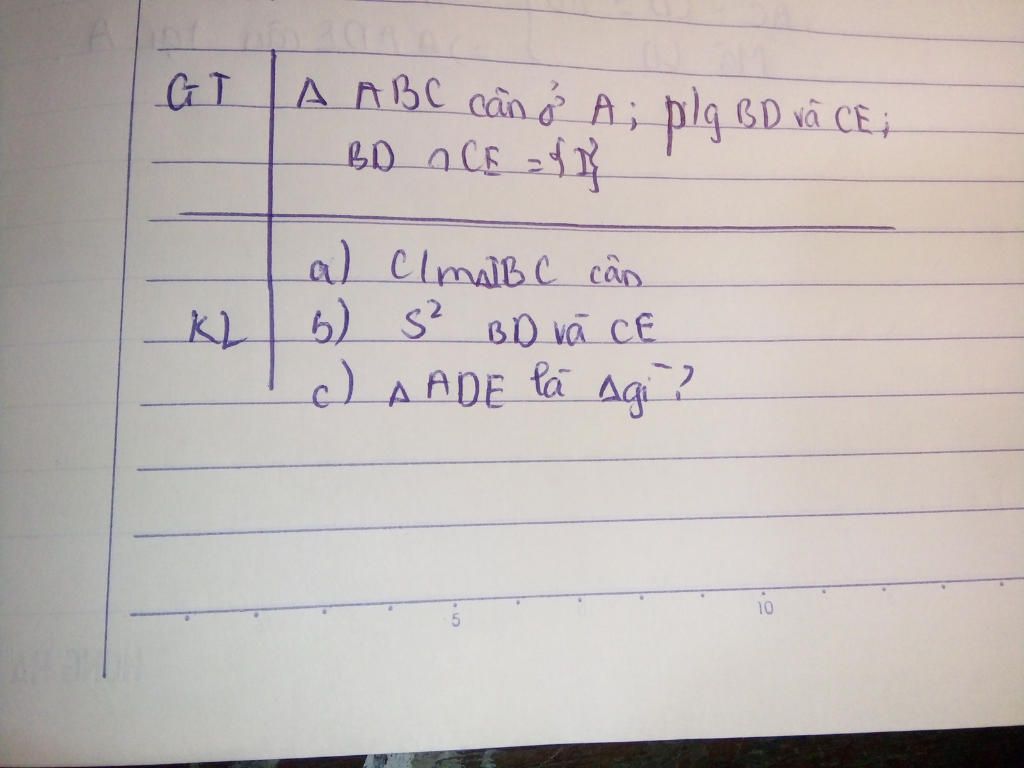 GT Δ ABC cân ở A; p/g BD và CE;
BD ∩ CE = {I}
a) C/m ΔIBC cân
KL b) S² BD và CE
c) Δ ADE là Δ gì?
5 10